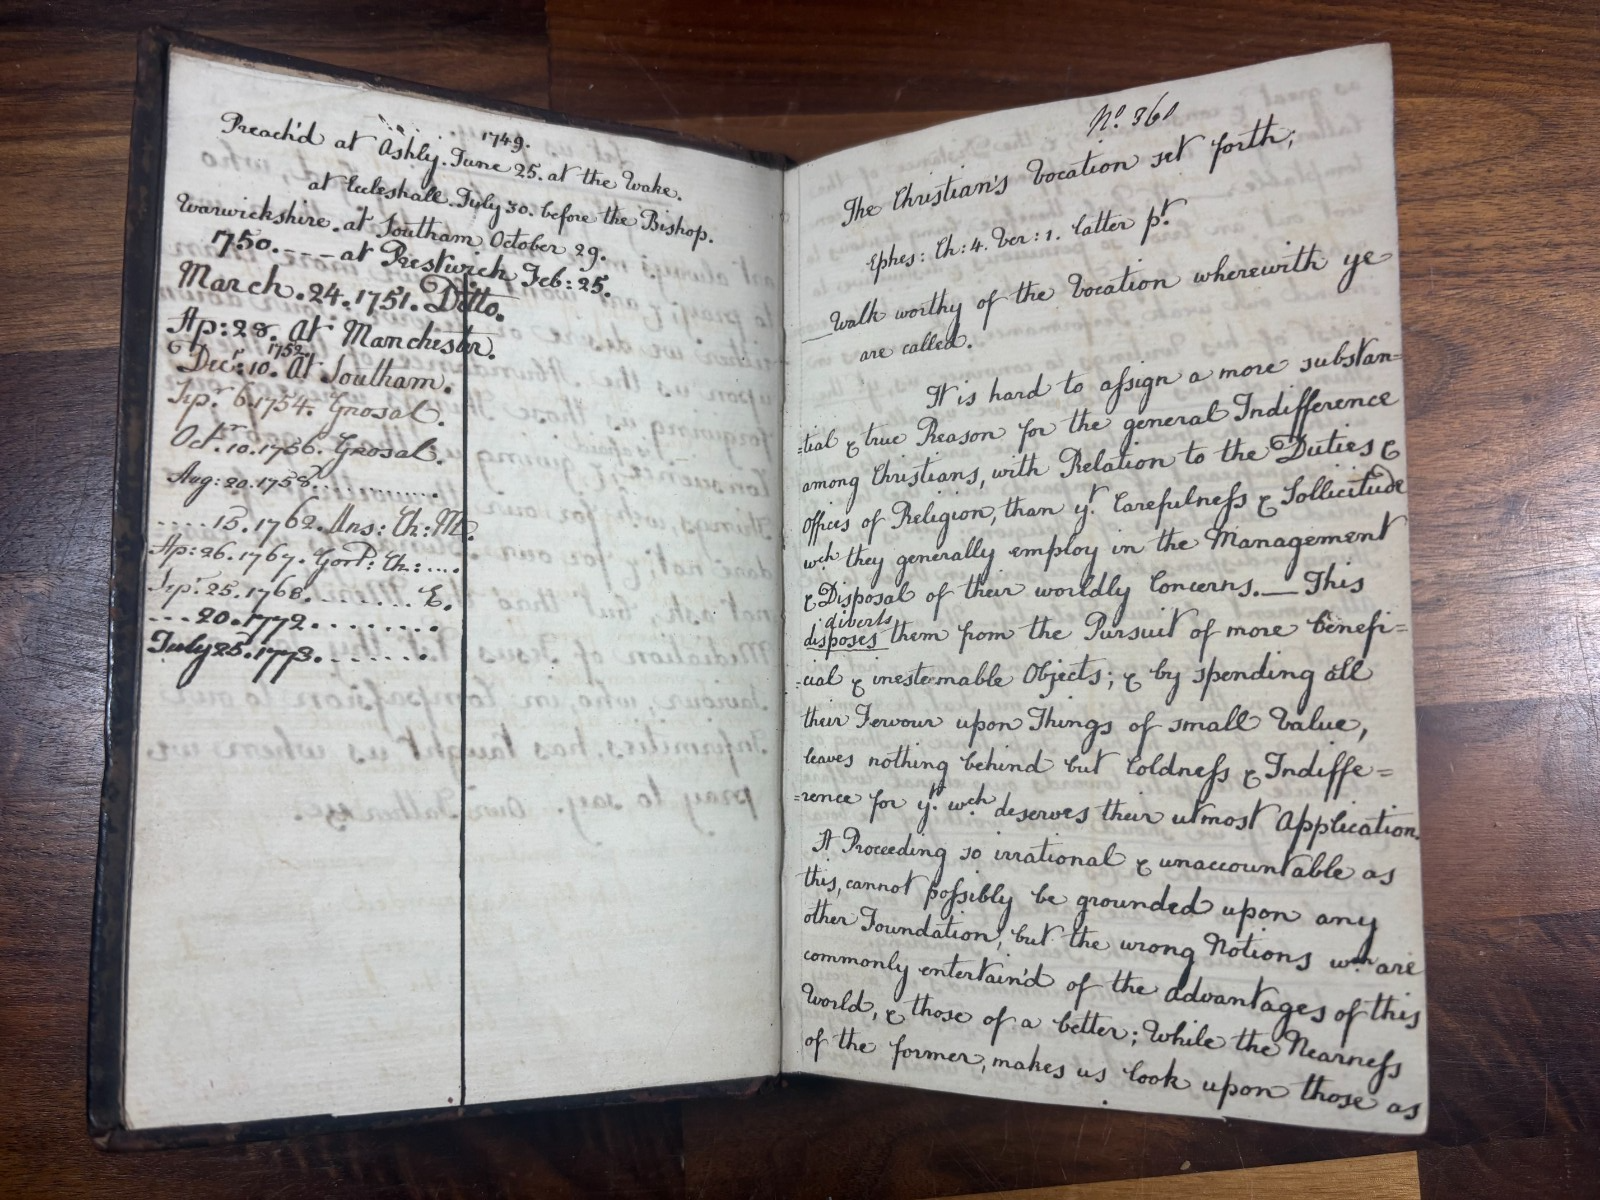 1749.
Preach'd at Ashly. June 25. at the Wake.
at Eccleshall. July 30. before the Bishop.
Warwickshire. at Southam October 29.
1750. --- at Prestwich Feb: 25.
March. 24. 1751. Ditto.
Ap: 28. At Manchester.
1752.
Decr. 10. At Southam.
Sepr. 6. 1754. Grosal.
Octr. 10. 1756. Grosal.
Aug: 20. 1758. ............
.... 15. 1762. Ans: Ch: M.
Ap: 26. 1767. Ch: ....
Sepr. 25. 1768. ....... E.
... 20. 1772. ........
July 25. 1773. ......
No. 360
The Christian's Vocation set forth;
Ephes: Ch: 4. Ver: 1. latter pt.
Walk worthy of the Vocation wherewith ye
are called.
It is hard to assign a more substan=
=tial & true Reason for the general Indifference
among Christians, with Relation to the Duties &
Offices of Religion, than yt. Carefulness & Sollicitude
wch they generally employ in the Management
& Disposal of their worldly Concerns. — This
diverts
disposes them from the Pursuit of more benefi=
=cial & inestemable Objects; & by spending all
their Fervour upon Things of small Value,
leaves nothing behind but Coldness & Indiffe=
=rence for yt. wch deserves their utmost Application.
A Proceeding so irrational & unaccountable as
this, cannot possibly be grounded upon any
other Foundation, but the wrong Notions wch are
commonly entertain'd of the advantages of this
World, & those of a better; While the Nearness
of the former, makes us look upon those as